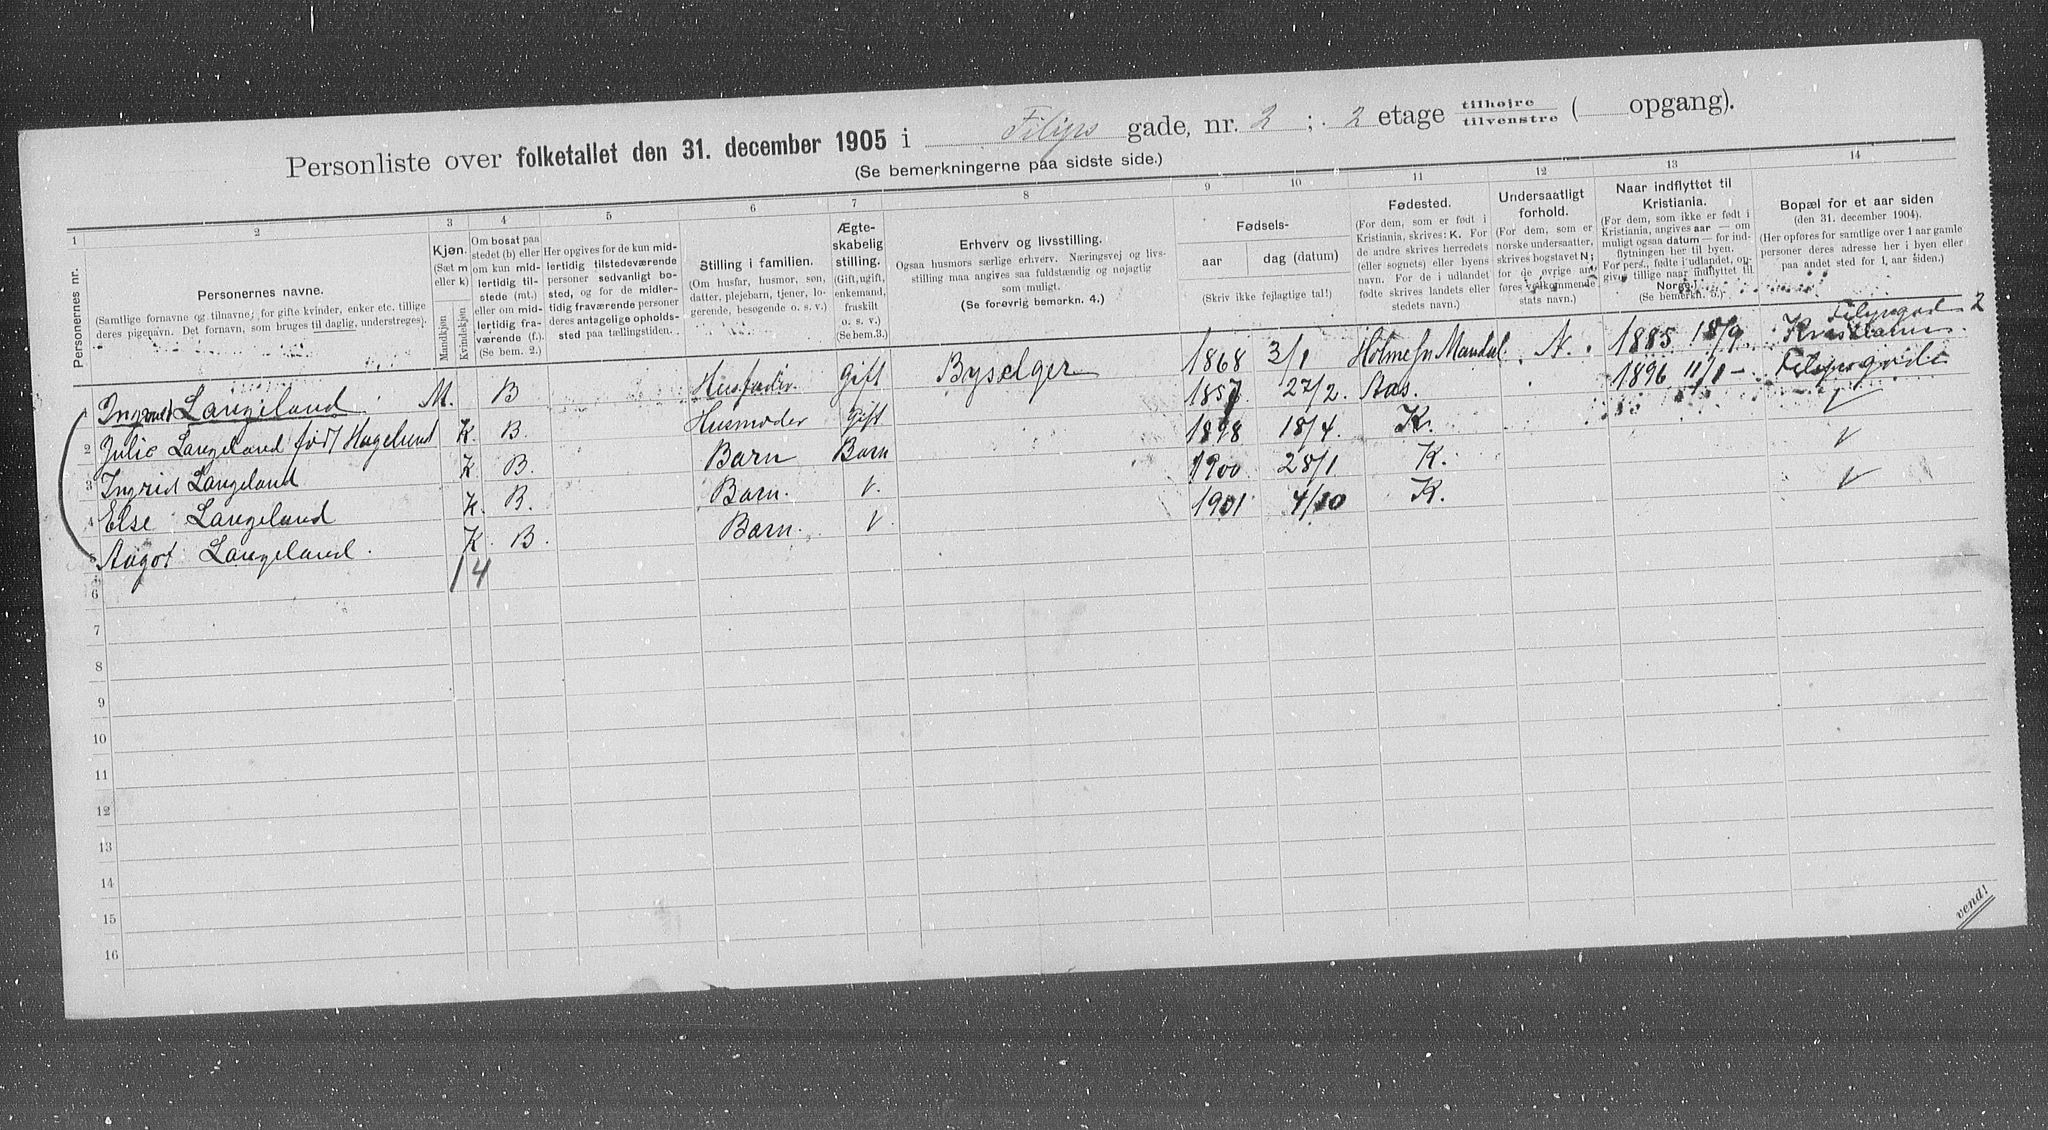 Personliste over folketallet den 31. december 1905 i Filips gade, nr. 2 ; 2 etage tilhøjre tilvenstre ( opgang).
(Se bemerkningerne paa sidste side.)
1 2 3 4 5 6 7 8 9 10 11 12 13 14
Personernes nr.
Personernes navne.
(Samtlige fornavne og tilnavne; for gifte kvinder, enker etc. tillige
deres pigenavn. Det fornavn, som bruges til daglig, understreges).
Kjøn.
(Sæt m
eller k)
Mandkjøn
Kvindekjøn
Om bosat paa
stedet (b) eller
om kun mid-
lertidig til-
stede (mt.)
eller om mid-
lertidig fra-
værende (f.).
(Se bem. 2.)
Her opgives for de kun mid-
lertidig tilstedeværende
personer sedvanligt bo-
sted, og for de midler-
tidig fraværende personer
deres antagelige opholds-
sted paa tællingstiden.
Stilling i familien.
(Om husfar, husmor, søn,
datter, plejebarn, tjener, lo-
gerende, besøgende o. s. v.)
Ægte-
skabelig
stilling.
(Gift, ugift,
enkemand,
fraskilt
o. s. v.)
(Se bem. 3.)
Erhverv og livsstilling.
Ogsaa husmors særlige erhverv. Næringsvej og livs-
stilling maa angives saa fuldstændig og nøjagtig
som muligt.
(Se forøvrig bemerkn. 4.)
Fødsels-
aar dag (datum)
(Skriv ikke fejlagtige tal!)
Fødested.
(For dem, som er født i
Kristiania, skrives: K. For
de andre skrives herredets
(eller sognets) eller byens
navn. For de i udlandet
fødte skrives landets eller
stedets navn.)
Undersaatligt
forhold.
(For dem, som er
norske undersaatter,
skrives bogstavet N;
for de øvrige an-
føres vedkommende
stats navn.)
Naar indflyttet til
Kristiania.
(For dem, som ikke er født i
Kristiania, angives aar — om
muligt ogsaa datum — for ind-
flytningen her til byen.
For pers., fødte i udlandet, op-
gives tillige naar indflyttet til
Norge.)
(Se bemerkn. 5.)
Bopæl for et aar siden
(den 31. december 1904).
(Her opføres for samtlige over 1 aar gamle
personer deres adresse her i byen eller
paa andet sted for 1, aar siden.)
Langeland M. B Husfader Gift Byselger 1868 3/1 Mandal N. 1885 18/9 Filipsgad 2 Kristiania
2 Julie Langeland født Hagelund K. B. Husmoder Gift 1857 27/2 Aas. 1896 11/1 - Filipsgade
3 Ingrid Langeland K B. Barn Barn 1898 18/4 K. V
4 Else Langeland K. B. Barn. V. 1900 28/1 K. V
5 Aagot Langeland. K. B. Barn. V. 1901 4/10 K. V
1 4
6
7
8
9
10
11
12
13
14
15
16
vend!